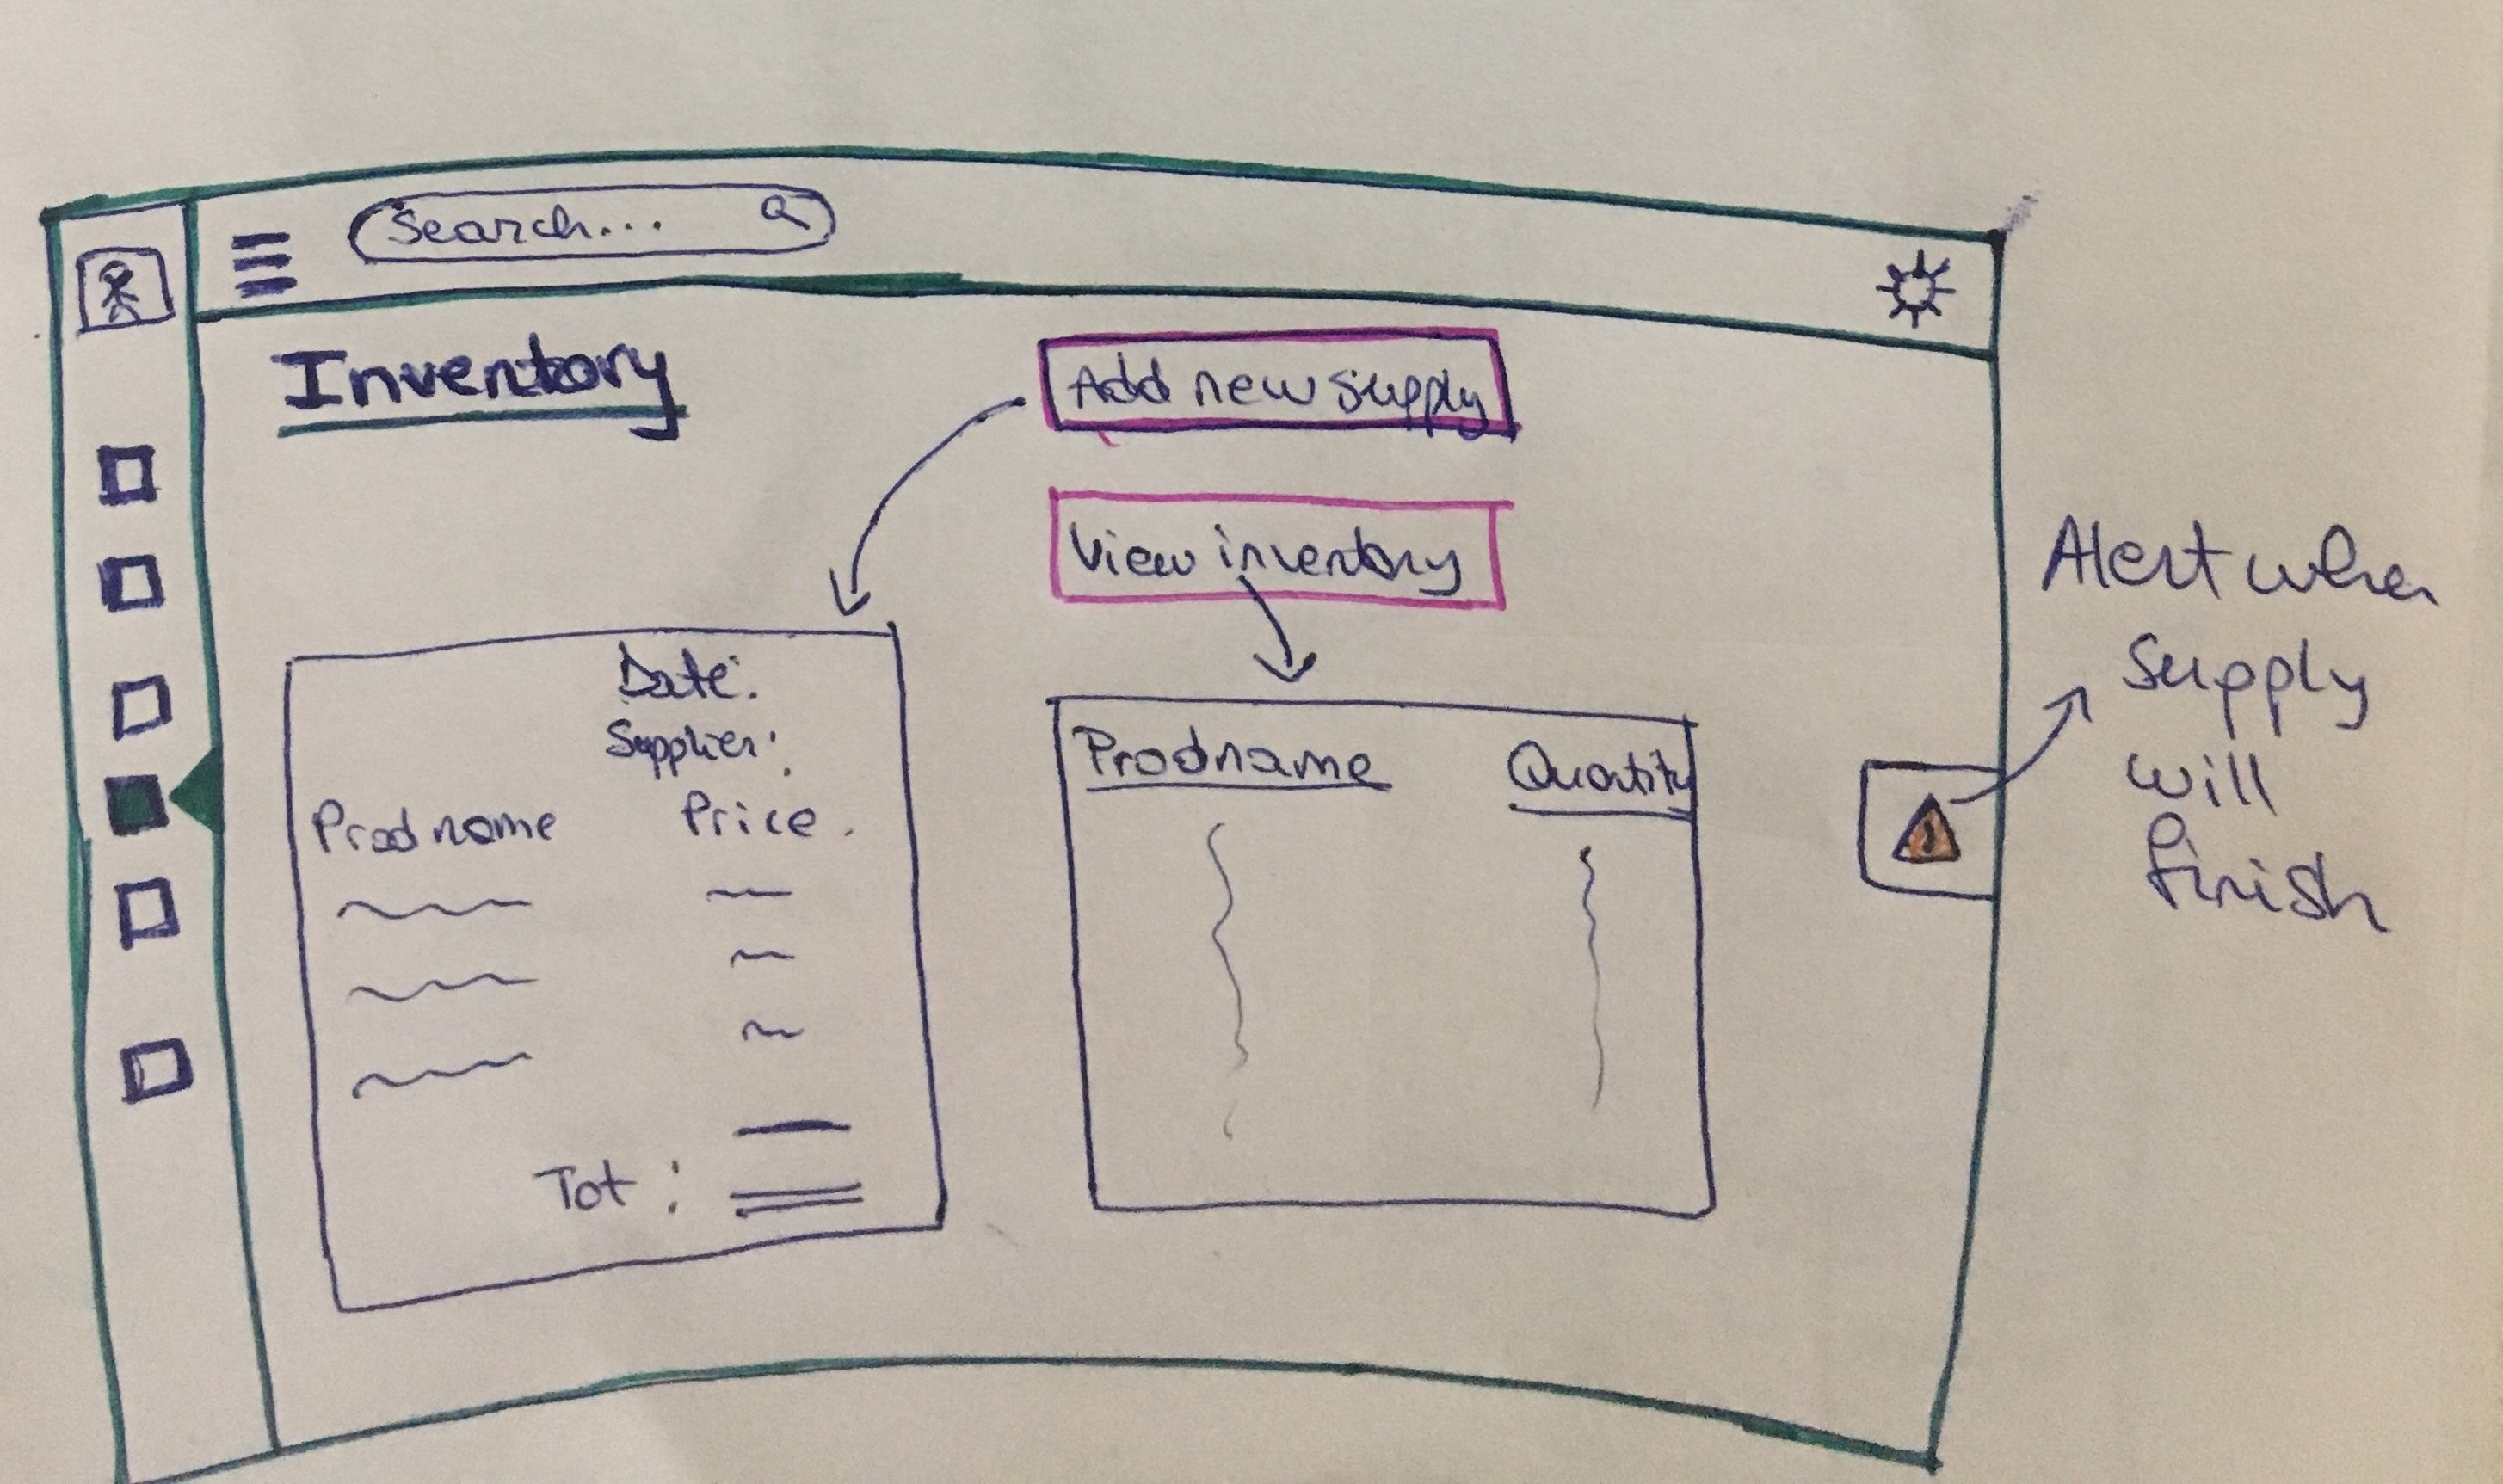 Search...
Inventory
Add new supply
View inventory
Date:
Supplier:
Prodname
Price.
Tot:
Prodname
Quantity
Alert when
supply
will
finish